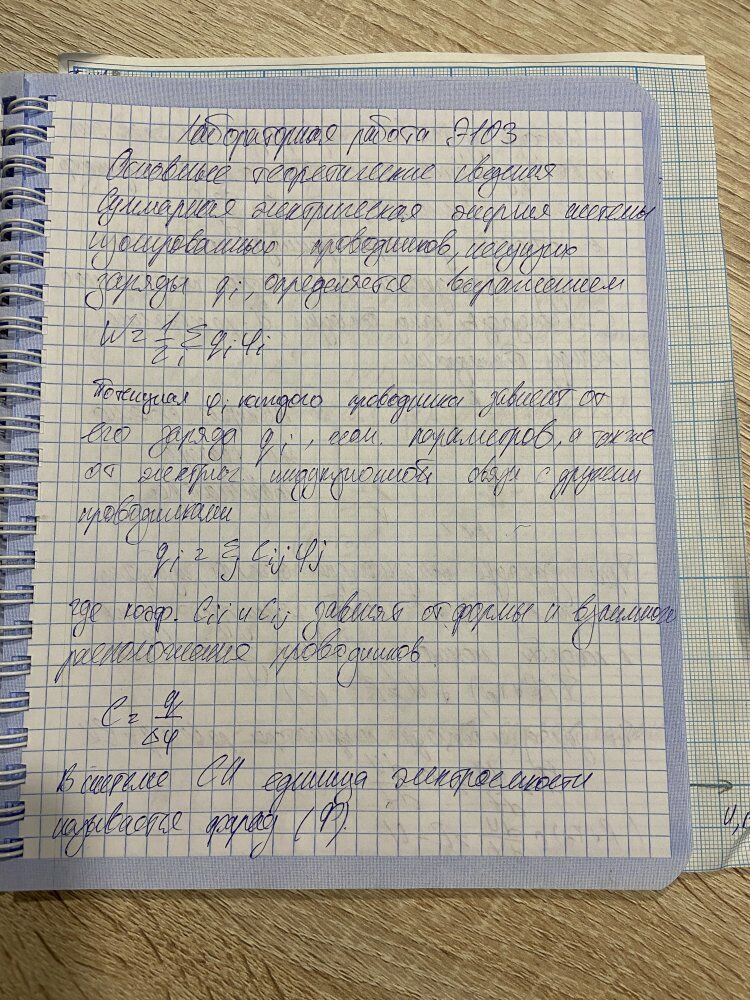 Лабораторная работа Э103
Основные теоретические сведения
Суммарная электрическая энергия системы
изолированных проводников, несущих
заряды qi, определяется выражением
W = 1/2 Σi qi φi
Потенциал φi каждого проводника зависит от
его заряда qi, геом. параметров, а также
от электрич. индукционной связи с другими
проводниками
qi = Σj Cij φj
где коэф. Cii и Cij зависят от формы и взаимного
расположения проводников
C = q/Δφ
В системе СИ единица электроемкости
называется фарад (Ф).